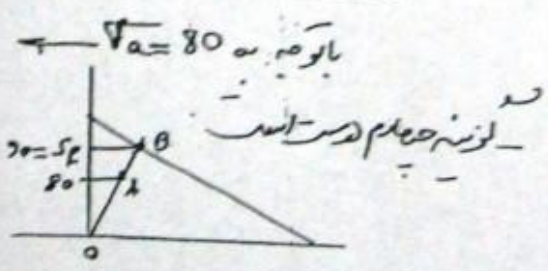 با توجه به V̅a = 80 ←
گزینه چهارم درست است
90 = Sf B
80 A
O